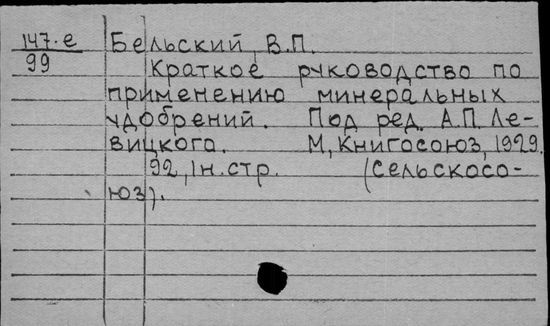 147-е Бельский, В.П.
99
Краткое руководство по
применению минеральных
удобрений. Под ред. А.П. Ле-
вицкого. М, Книгосоюз, 1929.
92, 1 н. стр. (Сельскосо-
юз).